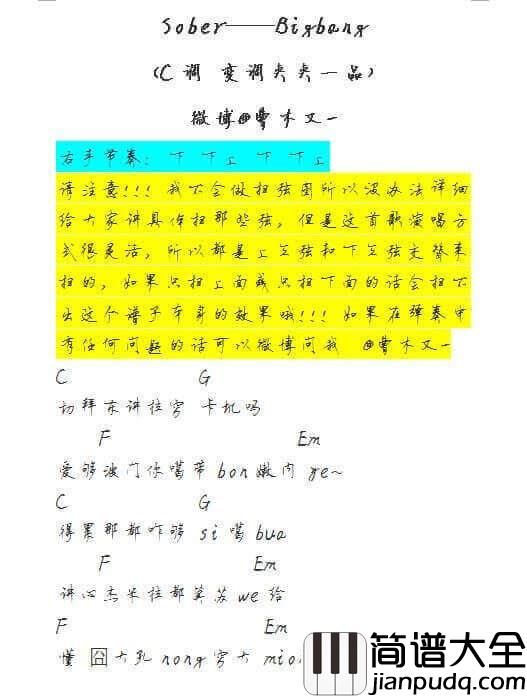 Sober——Bigbang
(C调 变调夹夹一品)
微博@曹木又一
右手节奏: 下 下上 下 下上
请注意!!! 我不会做扫弦图所以没办法详细
给大家讲具体扫那些弦, 但是这首歌演唱方
式很灵活, 所以都是上三弦和下三弦交替来
扫的, 如果只扫上面或只扫下面的话会扫不
出这个谱子本身的效果哦!!! 如果在弹奏中
有任何问题的话可以微博问我 @曹木又一
C G
切拜东讲拉穷 卡机吗
F Em
爱够波门你噶带 bon 嫩内 ye~
C G
得累那都咋够 si 噶 bua
F Em
讲心杰米拉都莫苏 we 给
F Em
懂 囧大孔 nong 穷大 mio
简谱大全
jianpudq.com